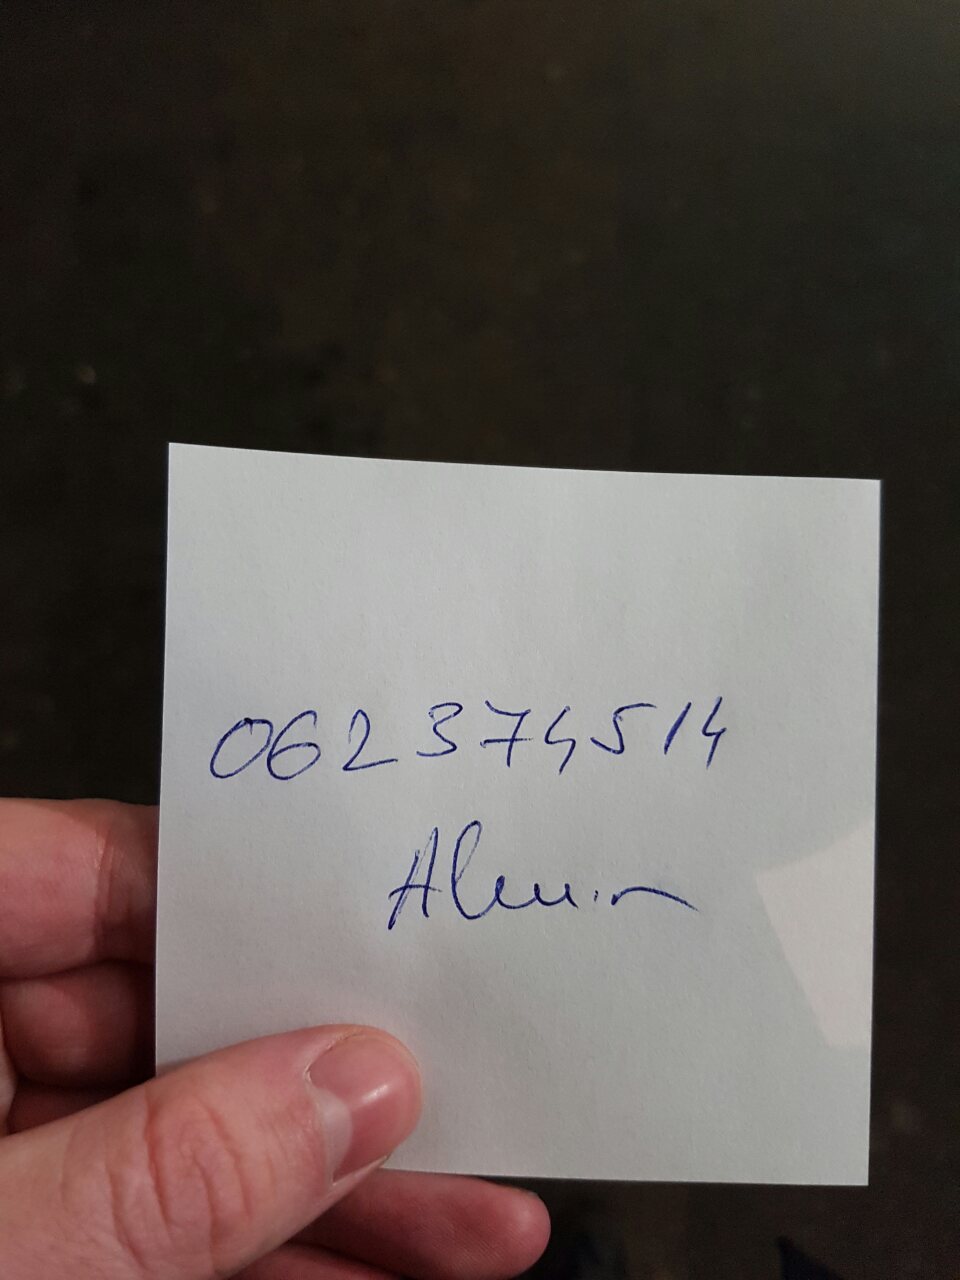 062374514
Almin